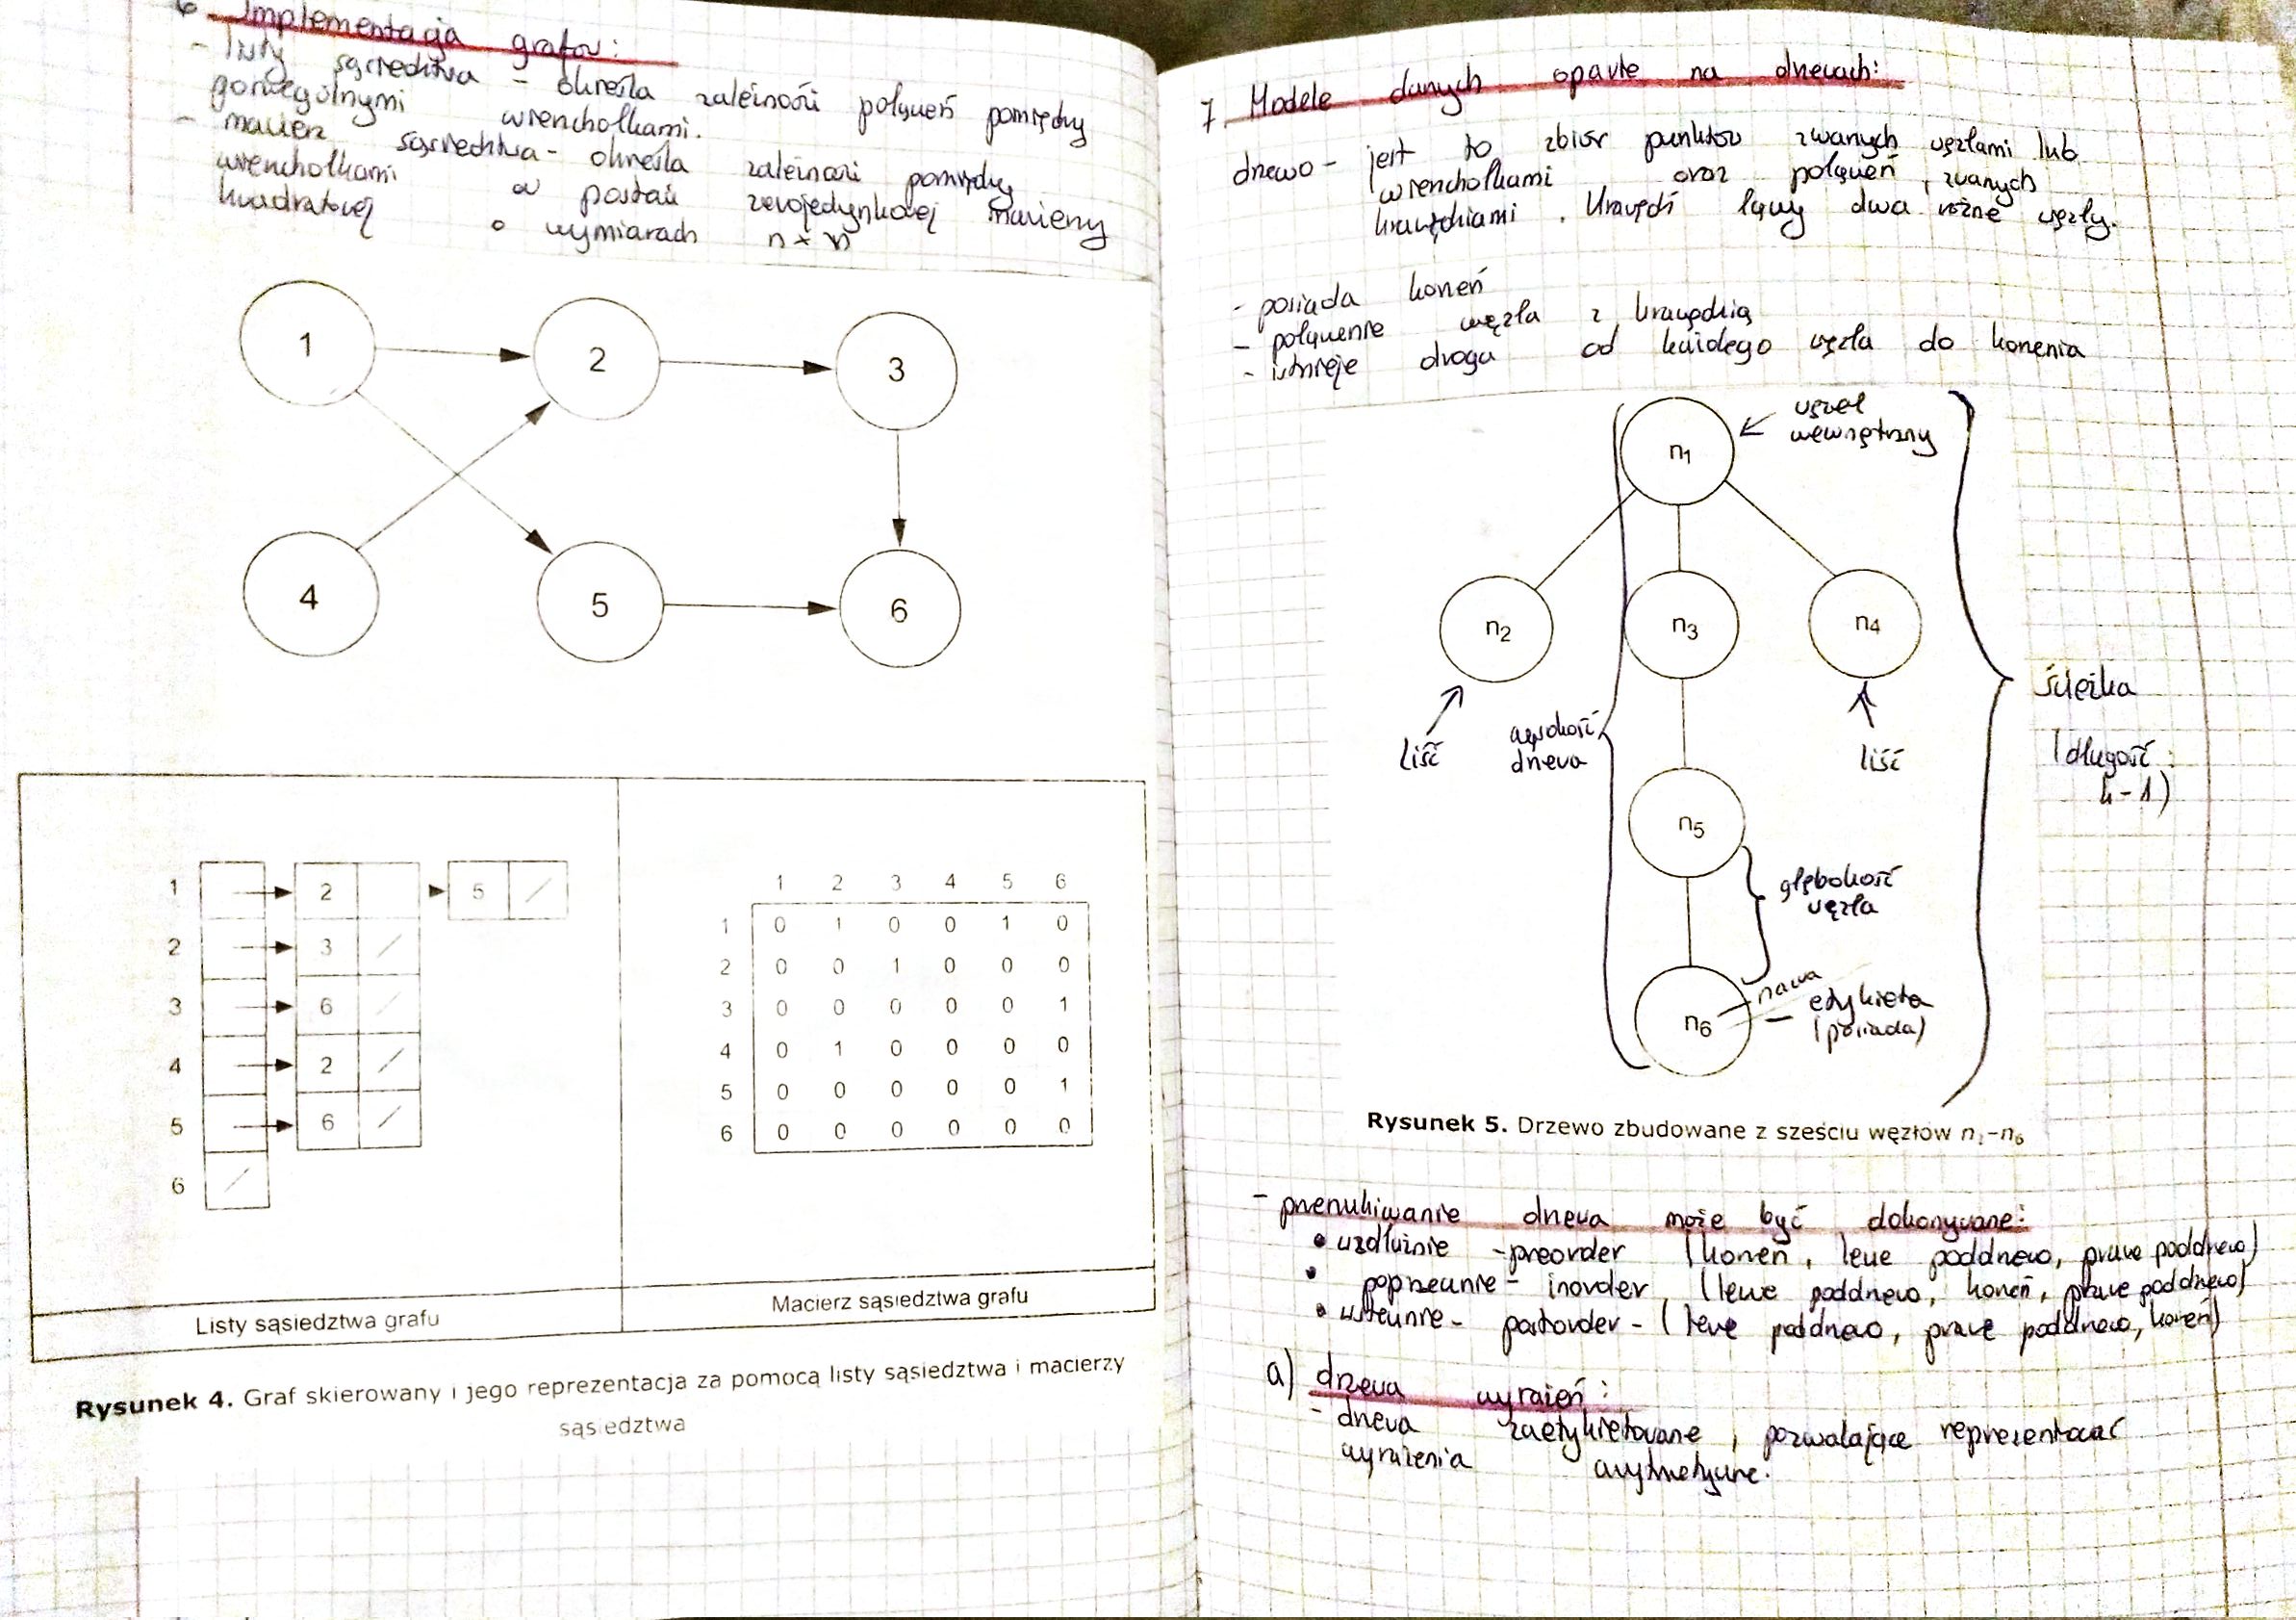 6. Implementacja grafów:
- listy sąsiedztwa - określa zależności połączeń pomiędzy
poszczególnymi wierzchołkami.
- macierz sąsiedztwa - określa zależności pomiędzy
wierzchołkami w postaci zerojedynkowej macierzy
kwadratowej o wymiarach n × n
1 2 3
4 5 6
1 2 5
2 3
3 6
4 2
5 6
6
1 2 3 4 5 6
1 0 1 0 0 1 0
2 0 0 1 0 0 0
3 0 0 0 0 0 1
4 0 1 0 0 0 0
5 0 0 0 0 0 1
6 0 0 0 0 0 0
Listy sąsiedztwa grafu
Macierz sąsiedztwa grafu
Rysunek 4. Graf skierowany i jego reprezentacja za pomocą listy sąsiedztwa i macierzy
sąsiedztwa
7. Modele danych oparte na drzewach:
drzewo - jest to zbiór punktów zwanych węzłami lub
wierzchołkami oraz połączeń, zwanych
krawędziami. Krawędź łączy dwa różne węzły.
- posiada korzeń
- połączenie węzła z krawędzią
- istnieje droga od każdego węzła do korzenia
węzeł
wewnętrzny
n1
n2 n3 n4
liść
wysokość
drzewa
liść
ścieżka
(długość:
k-1)
n5
głębokość
węzła
n6
nazwa
- etykieta
(posiada)
Rysunek 5. Drzewo zbudowane z sześciu węzłów n1-n6
- przeszukiwanie drzewa może być dokonywane:
• wzdłużnie - preorder (korzeń, lewe poddrzewo, prawe poddrzewo)
• poprzecznie - inorder (lewe poddrzewo, korzeń, prawe poddrzewo)
• wstecznie - postorder - (lewe poddrzewo, prawe poddrzewo, korzeń)
a) drzewa wyrażeń:
- drzewa zaetykietowane, pozwalające reprezentować
wyrażenia arytmetyczne.